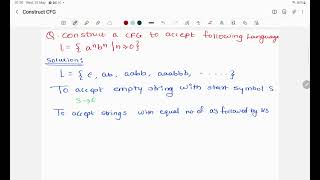 Construct CFG
Q. Construct a CFG to accept following Language
L = { aⁿbⁿ | n ≥ 0 }
Solution:
L = { ε, ab, aabb, aaabbb, ...... }
To accept empty string with start symbol S.
S → ε
To accept strings with equal no of as followed by bs